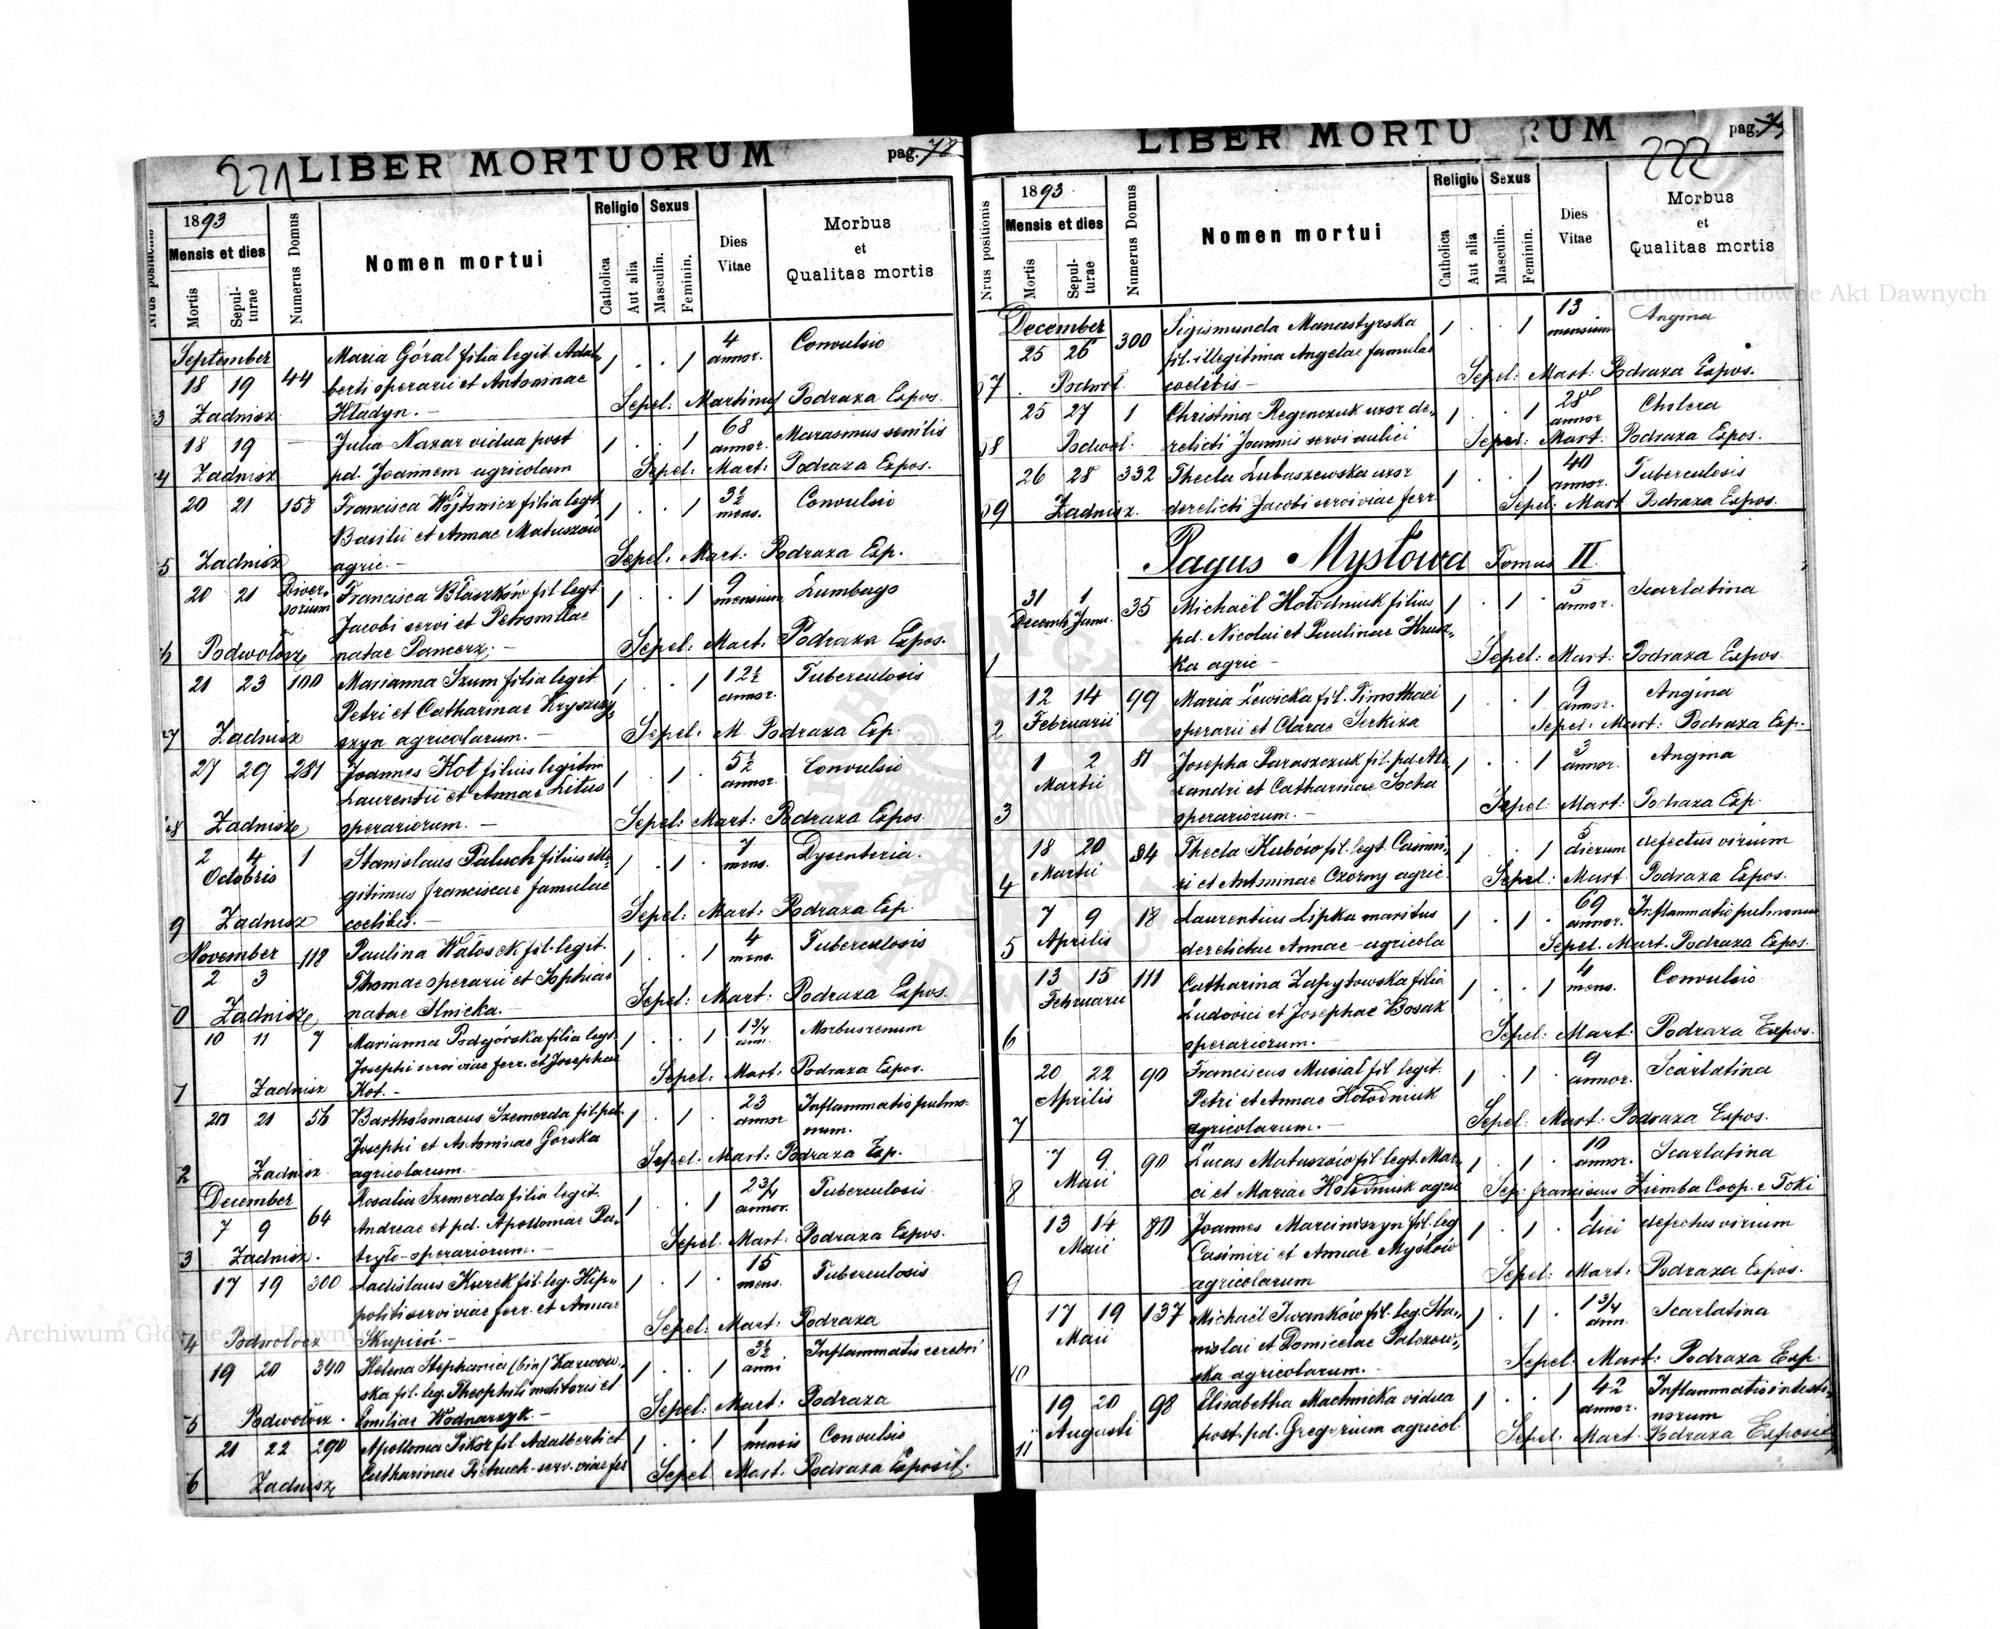 221 LIBER MORTUORUM pag. 78
Nrus positionis
1893
Mensis et dies
Mortis
Sepul-
turae
Numerus Domus
Nomen mortui
Religio
Catholica
Aut alia
Sexus
Masculin.
Feminin.
Dies
Vitae
Morbus
et
Qualitas mortis
September 44 Maria Góral filia legit. Adal- 1 . . 1 4 annor. Convulsio
18 19 berti operarii et Antoninae
3 Zadnisz. Hładyn. — Sepel. Martinus Podraza Expos.
18 19 — Julia Nazar vidua post 1 . . 1 68 annor. Marasmus senilis
4 Zadnisz pd. Joannem agricolam Sepel: Mart: Podraza Expos.
20 21 158 Francisca Wójtowicz filia legt. 1 . . 1 3½ mens. Convulsio
Basilii et Annae Matuszów
5 Zadnisz agric. — Sepel. Mart: Podraza Exp.
20 21 Diver- Francisca Błaszków fil. legt 1 . . 1 9 mensium Lumbago
sorium Jacobi servi et Petronellae
Podwołocz natae Pancerz. — Sepel. Mart. Podraza Expos.
21 23 100 Marianna Szum filia legit 1 . . 1 12½ annor. Tuberculosis
Petri et Catharinae Kryszczy-
7 Zadnisz szyn agricolarum. — Sepel: M. Podraza Exp.
27 29 281 Joannes Kot filius legitimi 1 . 1 . 5½ annor. Convulsio
Laurentii et Annae Litus
8 Zadnisz operariorum. — Sepel: Mart: Podraza Expos.
2 4 1 Stanislaus Paluch filius ille- 1 . 1 . 7 mens. Dysenteria.
Octobris gitimus Franciscae famulae
9 Zadnisz coelibis. — Sepel: Mart: Podraza Exp.
November 118 Paulina Watosek fil. legit. 1 . . 1 4 mens. Tuberculosis
2 3 Thomae operarii et Sophiae
0 Zadnisz natae Ilnicka. — Sepel: Mart: Podraza Expos.
10 11 7 Marianna Podgórska filia legt. 1 . . 1 1¾ ann. Morbus renum
Josephi servi viae ferr. et Josephae
1 Zadnisz Kot. — Sepel: Mart: Podraza Expos.
20 21 56 Bartholomaeus Szemerda fil. pd. 1 . 1 . 23 annor Inflammatio pulmo-
Josephi et Antoninae Górska num.
2 Zadnisz. agricolarum. Sepel: Mart: Podraza Exp.
December 64 Rosalia Szemerda filia legit. 1 . . 1 2¾ annor. Tuberculosis
7 9 Andreae et pd. Apolloniae Pa-
3 Zadnisz. operariorum. — Sepel. Mart: Podraza Expos.
17 19 300 Ladislaus Kurek fil. leg. Hip- 1 . 1 . 15 mens. Tuberculosis
politi servi viae ferr. et Annae
4 Podwołocz Skupień. — Sepel: Mart: Podraza
19 20 340 Helena Stephania (bin) Karwow- 1 . . 1 3½ anni Inflammatio cerebri
ska fil. leg. Theophili molitoris et
5 Podwołocz. Emiliae Wodnarzyk. — Sepel: Mart: Podraza
21 22 290 Apollonia Pikor fil. Adalberti et 1 . . 1 1 mensis Convulsio
6 Zadnisz Catharinae Pietruch serv. viae fer Sepel. Mart. Podraza Exposit.
LIBER MORTUORUM 222 pag.
Nrus positionis
1893
Mensis et dies
Mortis
Sepul-
turae
Numerus Domus
Nomen mortui
Religio
Catholica
Aut alia
Sexus
Masculin.
Feminin.
Dies
Vitae
Morbus
et
Qualitas mortis
December 300 Sigismunda Manastyrska 1 . . 1 13 mensium Angina
25 26 fil. illegitima Angelae famulae
7 Podwoł. coelibis — Sepel: Mart: Podraza Expos.
25 27 1 Christina Regenczuk uxor de- 1 . . 1 28 annor Cholera
8 Podwoł. relicti Joannis servi aulici Sepel: Mart: Podraza Expos.
26 28 332 Thecla Lubaszewska uxor 1 . . 1 40 annor. Tuberculosis
9 Zadnisz. derelicti Jacobi servi viae ferr. Sepel: Mart Podraza Expos.
Pagus Mysłowa Tomus II.
31 1 35 Michaël Hołodniuk filius 1 . 1 . 5 annor. Scarlatina
Decemb. Janu. pd. Nicolai et Paulinae Hrusz-
1 ka agric — Sepel: Mart: Podraza Expos
12 14 99 Maria Lewicka fil. Timothaei 1 . . 1 9 annor. Angina
2 Februarii operarii et Clarae Serkiza Sepel: Mart: Podraza Exp.
1 2 81 Josepha Paraszczuk fil. pd. Ale- 1 . . 1 3 annor. Angina
Martii xandri et Catharinae Socha
3 operariorum. — Sepel: Mart: Podraza Exp.
18 20 34 Thecla Kubów fil. legt. Casimi- 1 . . 1 5 dierum defectus virium
4 Martii ri et Antoninae Czorny agric. Sepel: Mart Podraza Expos.
7 9 18 Laurentius Lipka maritus 1 . 1 . 69 annor. Inflammatio pulmonum
5 Aprilis derelictae Annae agricola Sepel. Mart. Podraza Expos.
13 15 111 Catharina Zapytowska filia 1 . . 1 4 mens. Convulsio
Februarii Ludovici et Josephae Bosak
6 operariorum. — Sepel: Mart: Podraza Expos.
20 22 90 Franciscus Musial fil. legit. 1 . 1 . 9 annor. Scarlatina
Aprilis Petri et Annae Hołodniuk
7 agricolarum. — Sepel: Mart: Podraza Expos.
7 9 90 Lucas Matuszów fil. legt. Mar- 1 . 1 . 10 annor. Scarlatina
8 Maii ci et Mariae Hołodniuk agric Sep: Franciscus Ziemba Coop. e Toki
13 14 80 Joannes Marciniszyn fil. leg 1 . 1 . 1 diei defectus virium
Maii Casimiri et Annae Myśków
9 agricolarum Sepel: Mart: Podraza Expos.
17 19 137 Michaël Iwanków fil. leg. Sta- 1 . 1 . 1¾ ann. Scarlatina
Maii nislai et Domicelae
10 ska agricolarum. — Sepel: Mart: Podraza Exp.
19 20 98 Elisabetha Machnicka vidua 1 . . 1 42 annor. Inflammatio intesti-
Augusti post. pd. Gregorium agricol. norum
11 Sepel. Mart. Podraza Exposit
Archiwum Główne Akt Dawnych
Archiwum Główne Akt Dawnych